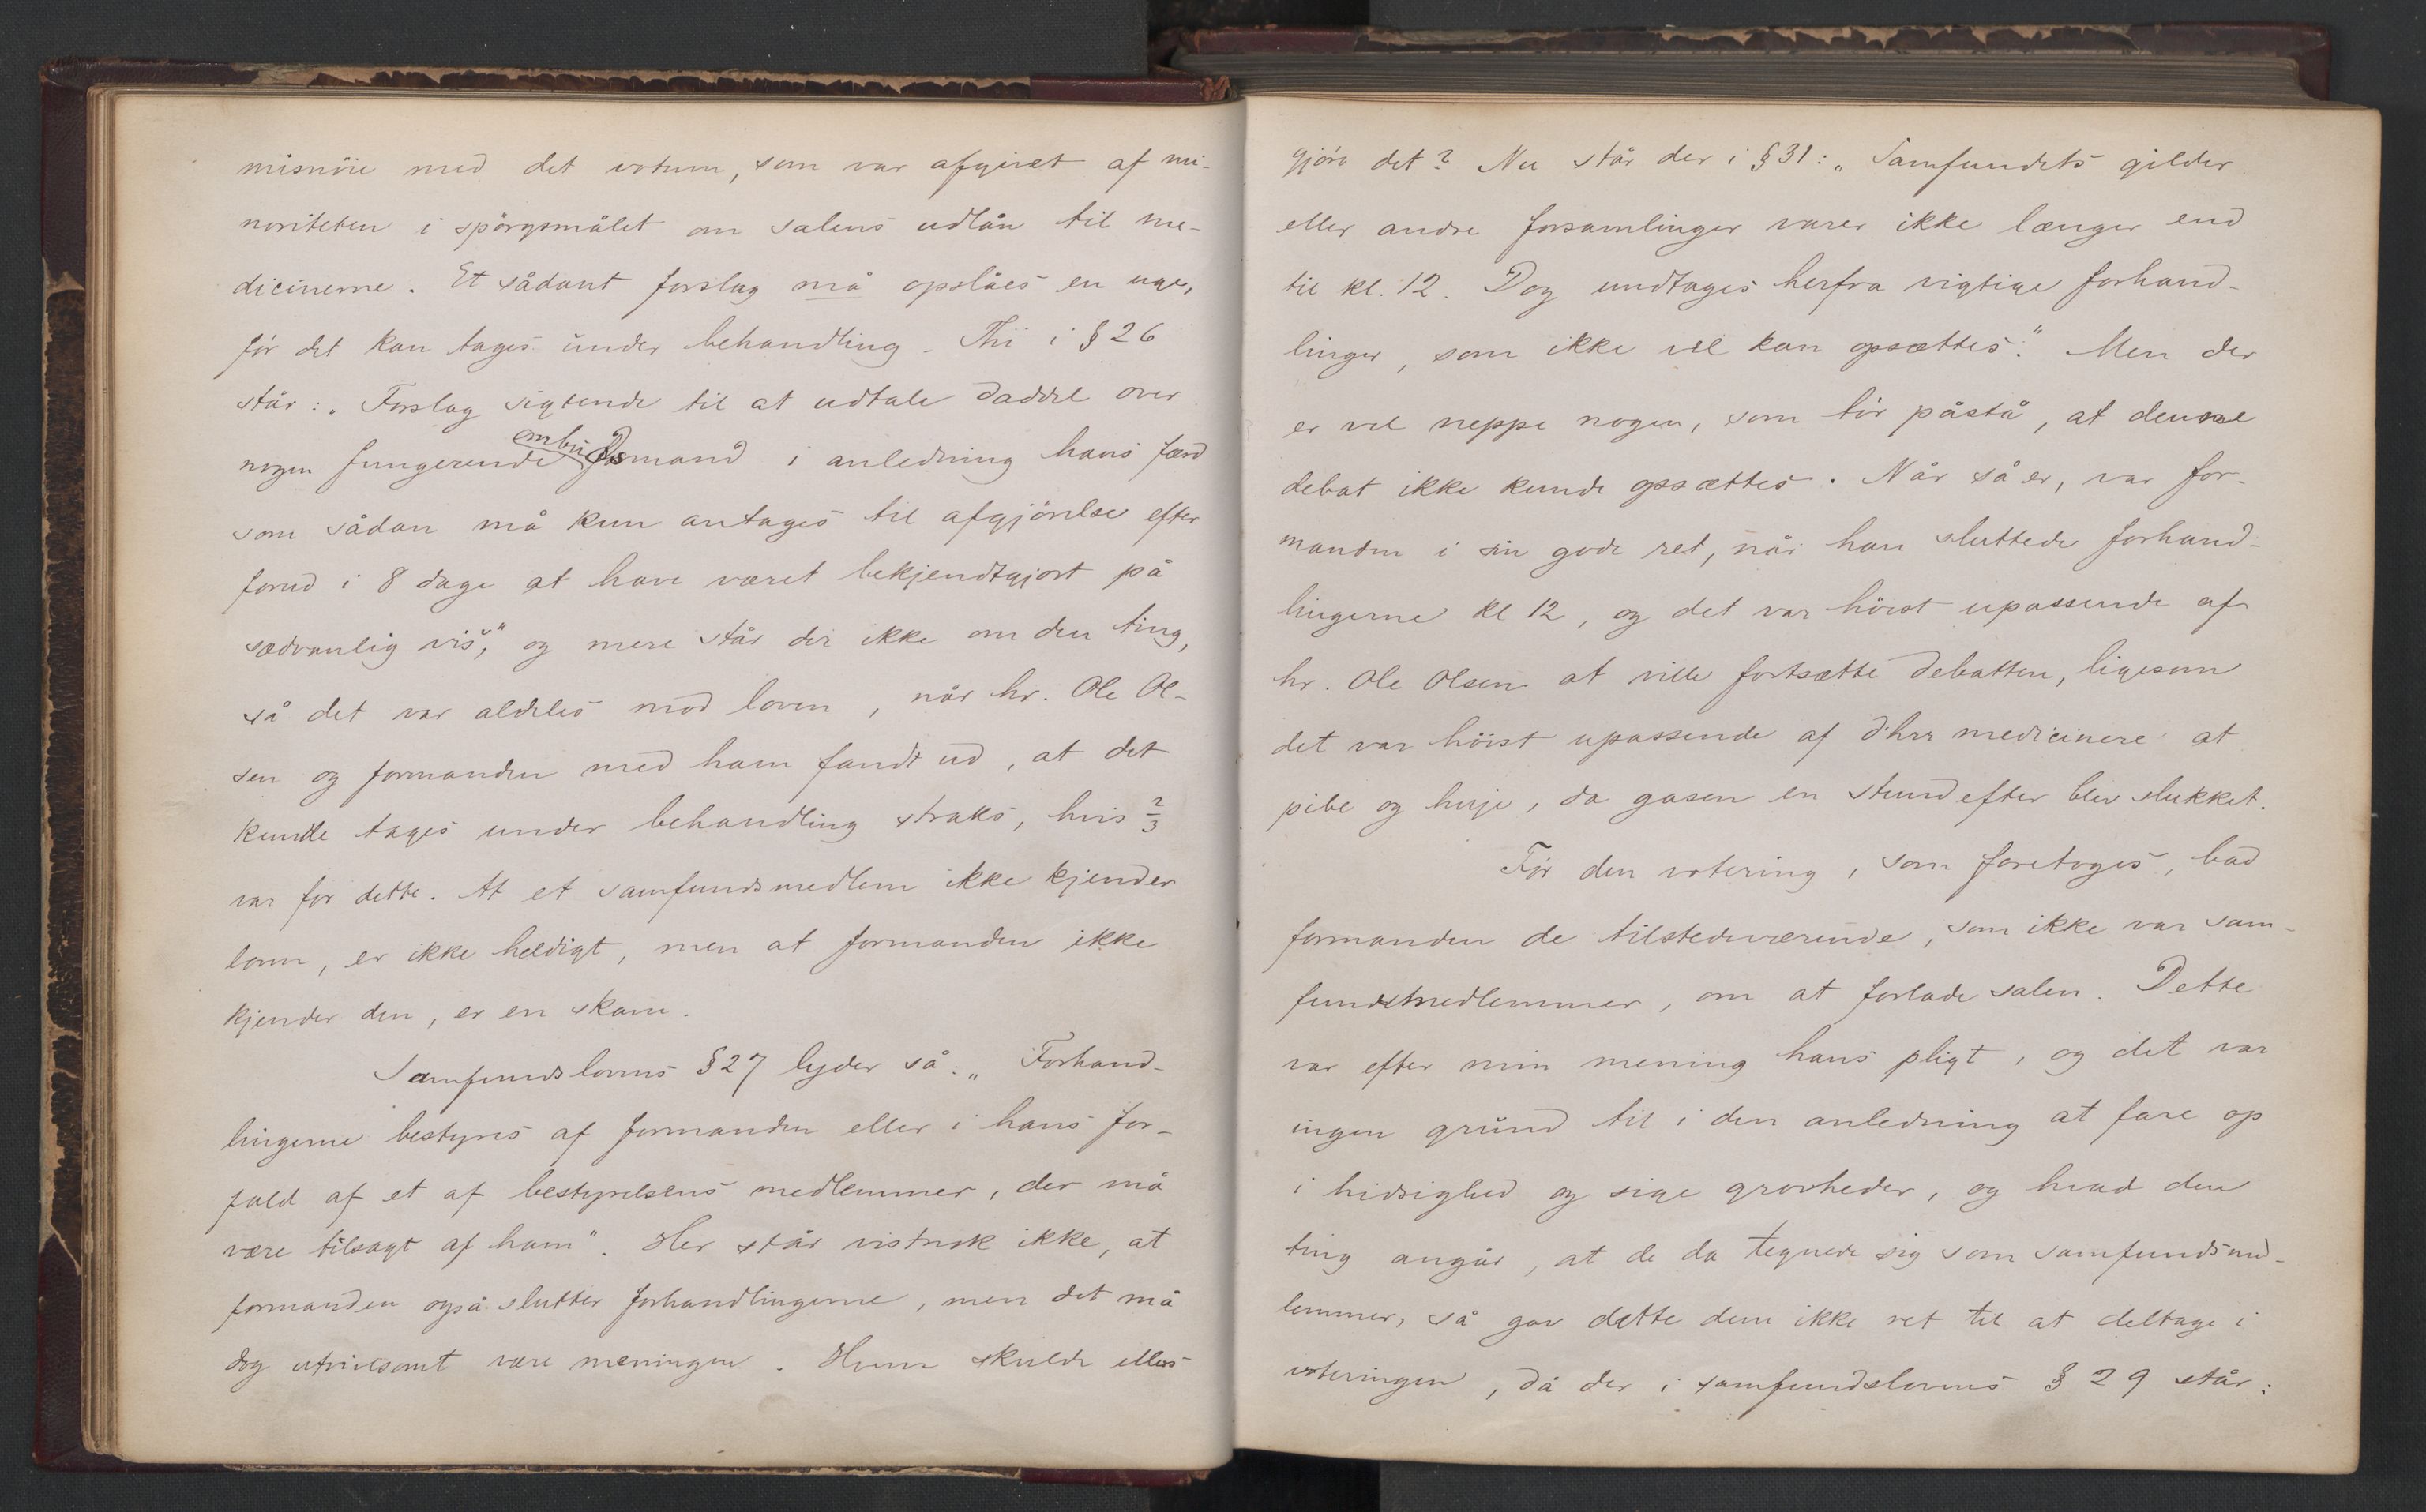 misnöie med det votum, som var afgivet af mi-
noriteten i spörgsmålet om salens udlån til me-
dicinerne. Et sådant forslag må opslåes en uge,
för det kan tages under behandling. Thi i § 26
står: „Forslag sigtende til at udtale daddel over
nogen fungerende embudsmand i anledning hans færd
som sådan må kun antages til afgjörelse efter
forud i 8 dage at have været bekjendtgjort på
sædvanlig vis," og mere står der ikke om den ting,
så det var aldeles mod loven, når hr. Ole Ol-
sen og formanden med ham fandt ud, at det
kunde tages under behandling straks, hvis 2/3
var for dette. At et samfundsmedlem ikke kjender
loven, er ikke heldigt, men at formanden ikke
kjender den, er en skam.
Samfundslovens § 27 lyder så: „Forhand-
lingerne bestyres af formanden eller i hans for-
fald af et af bestyrelsens medlemmer, der må
være tilsagt af ham". Her står vistnok ikke, at
formanden også slutter forhandlingerne, men det må
dog utvivlsomt være meningen. Hvem skulde ellers
gjöre det? Nu står der i § 31: „Samfundets gilder
eller andre forsamlinger varer ikke længer end
til kl. 12. Dog undtages herfra vigtige forhand-
linger, som ikke vel kan opsættes." Men der
er vel neppe nogen, som tör påstå, at denne
debat ikke kunde opsættes. Når så er, var for-
manden i sin gode ret, når han sluttede forhand-
lingerne kl 12, og det var höist upassende af
hr. Ole Olsen at ville fortsætte debatten, ligesom
det var höist upassende af dhrr medicinere at
pibe og huje, da gasen en stund efter blev slukket.
Før den votering, som foretoges, bad
formanden de tilstedeværende, som ikke var sam-
fundsmedlemmer, om at forlade salen. Dette
var efter min mening hans pligt, og det var
ingen grund til i den anledning at fare op
i hidsighed og sige grovheder, og hvad den
ting angår, at de da tegnede sig som samfundsmed-
lemmer, så gav dette dem ikke ret til at deltage i
voteringen, da der i samfundslovens § 29 står: